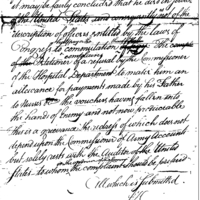 it may be fairly concluded that he did in fact
of the United States and consequently not of the
description of officers entitled by the Laws of
Congress to commutation. The complaint
of the Petitioner of a refusal by the Commissioner
of the Hospital Department to make him an
allowance for payments made by his Father
to Nurses the vouchers having fallen into
the hands of Enemy and not now producible
this is a grievance the redress of which does not
depend upon the Commissioner of Army Accounts
but solely rests with the Auditor of the United
States to whom the complainant should be
All which is submitted